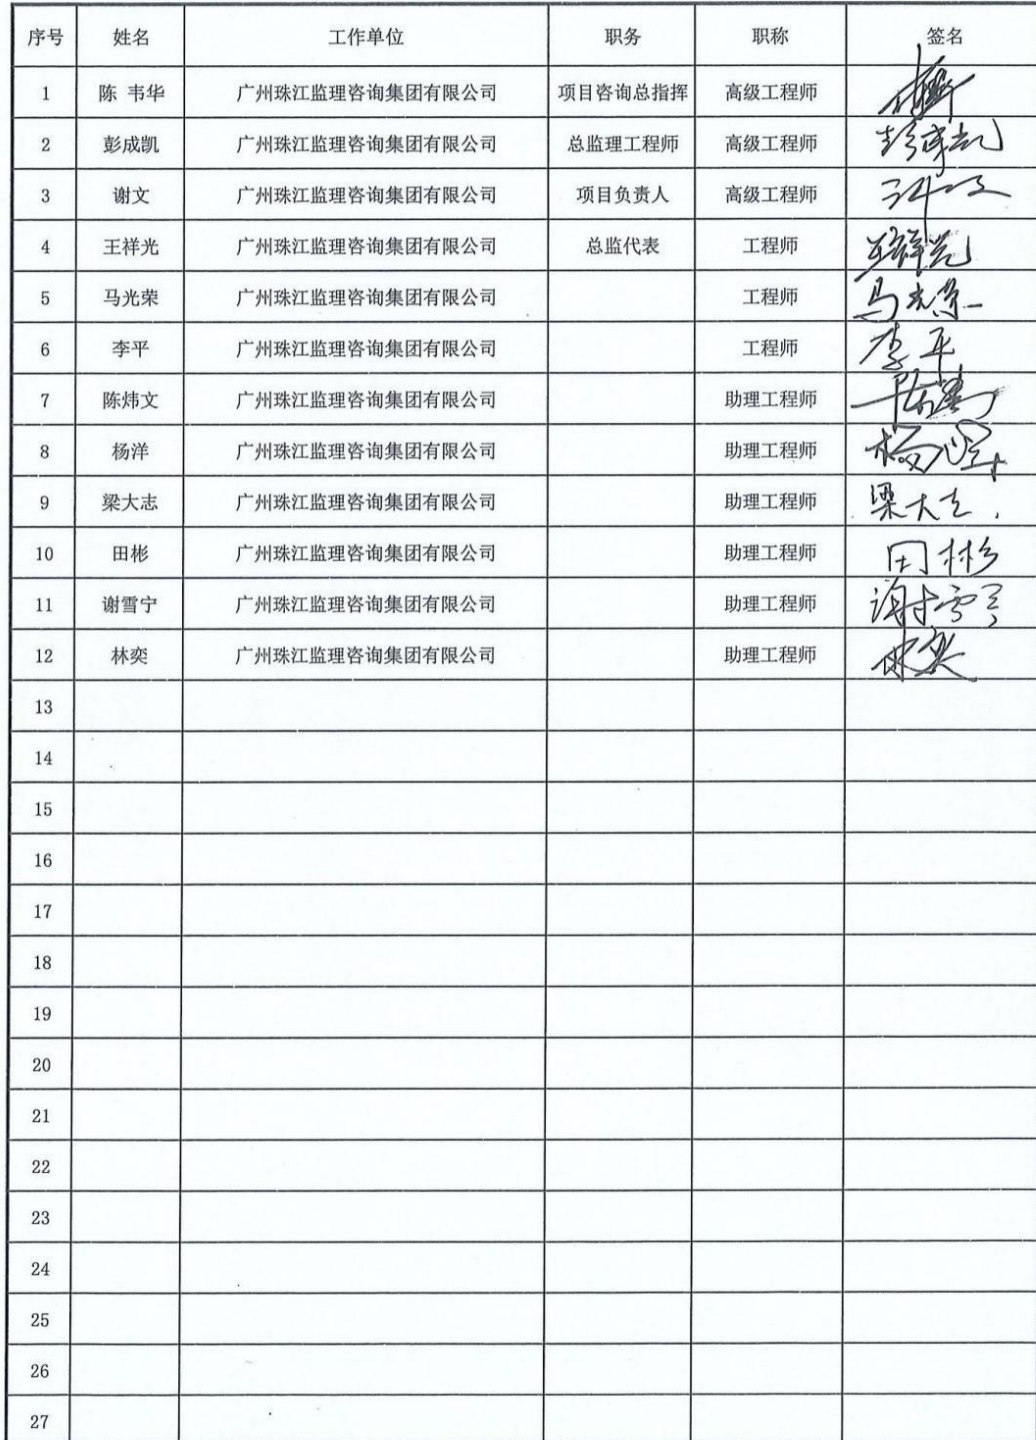 序号 姓名 工作单位 职务 职称 签名
1 陈 韦华 广州珠江监理咨询集团有限公司 项目咨询总指挥 高级工程师
2 彭成凯 广州珠江监理咨询集团有限公司 总监理工程师 高级工程师 彭成凯
3 谢文 广州珠江监理咨询集团有限公司 项目负责人 高级工程师
4 王祥光 广州珠江监理咨询集团有限公司 总监代表 工程师 王祥光
5 马光荣 广州珠江监理咨询集团有限公司 工程师 马光荣
6 李平 广州珠江监理咨询集团有限公司 工程师 李平
7 陈炜文 广州珠江监理咨询集团有限公司 助理工程师
8 杨洋 广州珠江监理咨询集团有限公司 助理工程师 杨洋
9 梁大志 广州珠江监理咨询集团有限公司 助理工程师 梁大志
10 田彬 广州珠江监理咨询集团有限公司 助理工程师 田彬
11 谢雪宁 广州珠江监理咨询集团有限公司 助理工程师 谢雪宁
12 林奕 广州珠江监理咨询集团有限公司 助理工程师 林奕
13
14
15
16
17
18
19
20
21
22
23
24
25
26
27